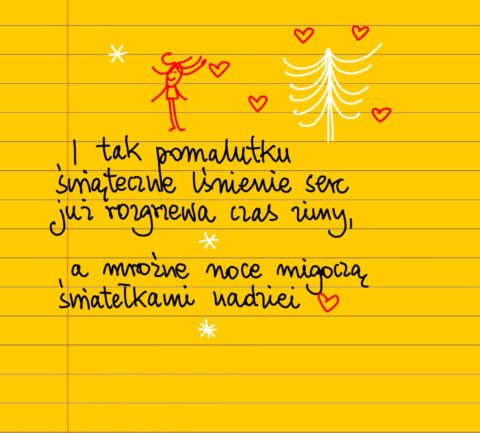 I tak pomalutku
świąteczne lśnienie serc
już rozgrzewa czas zimy,
a mroźne noce migoczą
światełkami nadziei